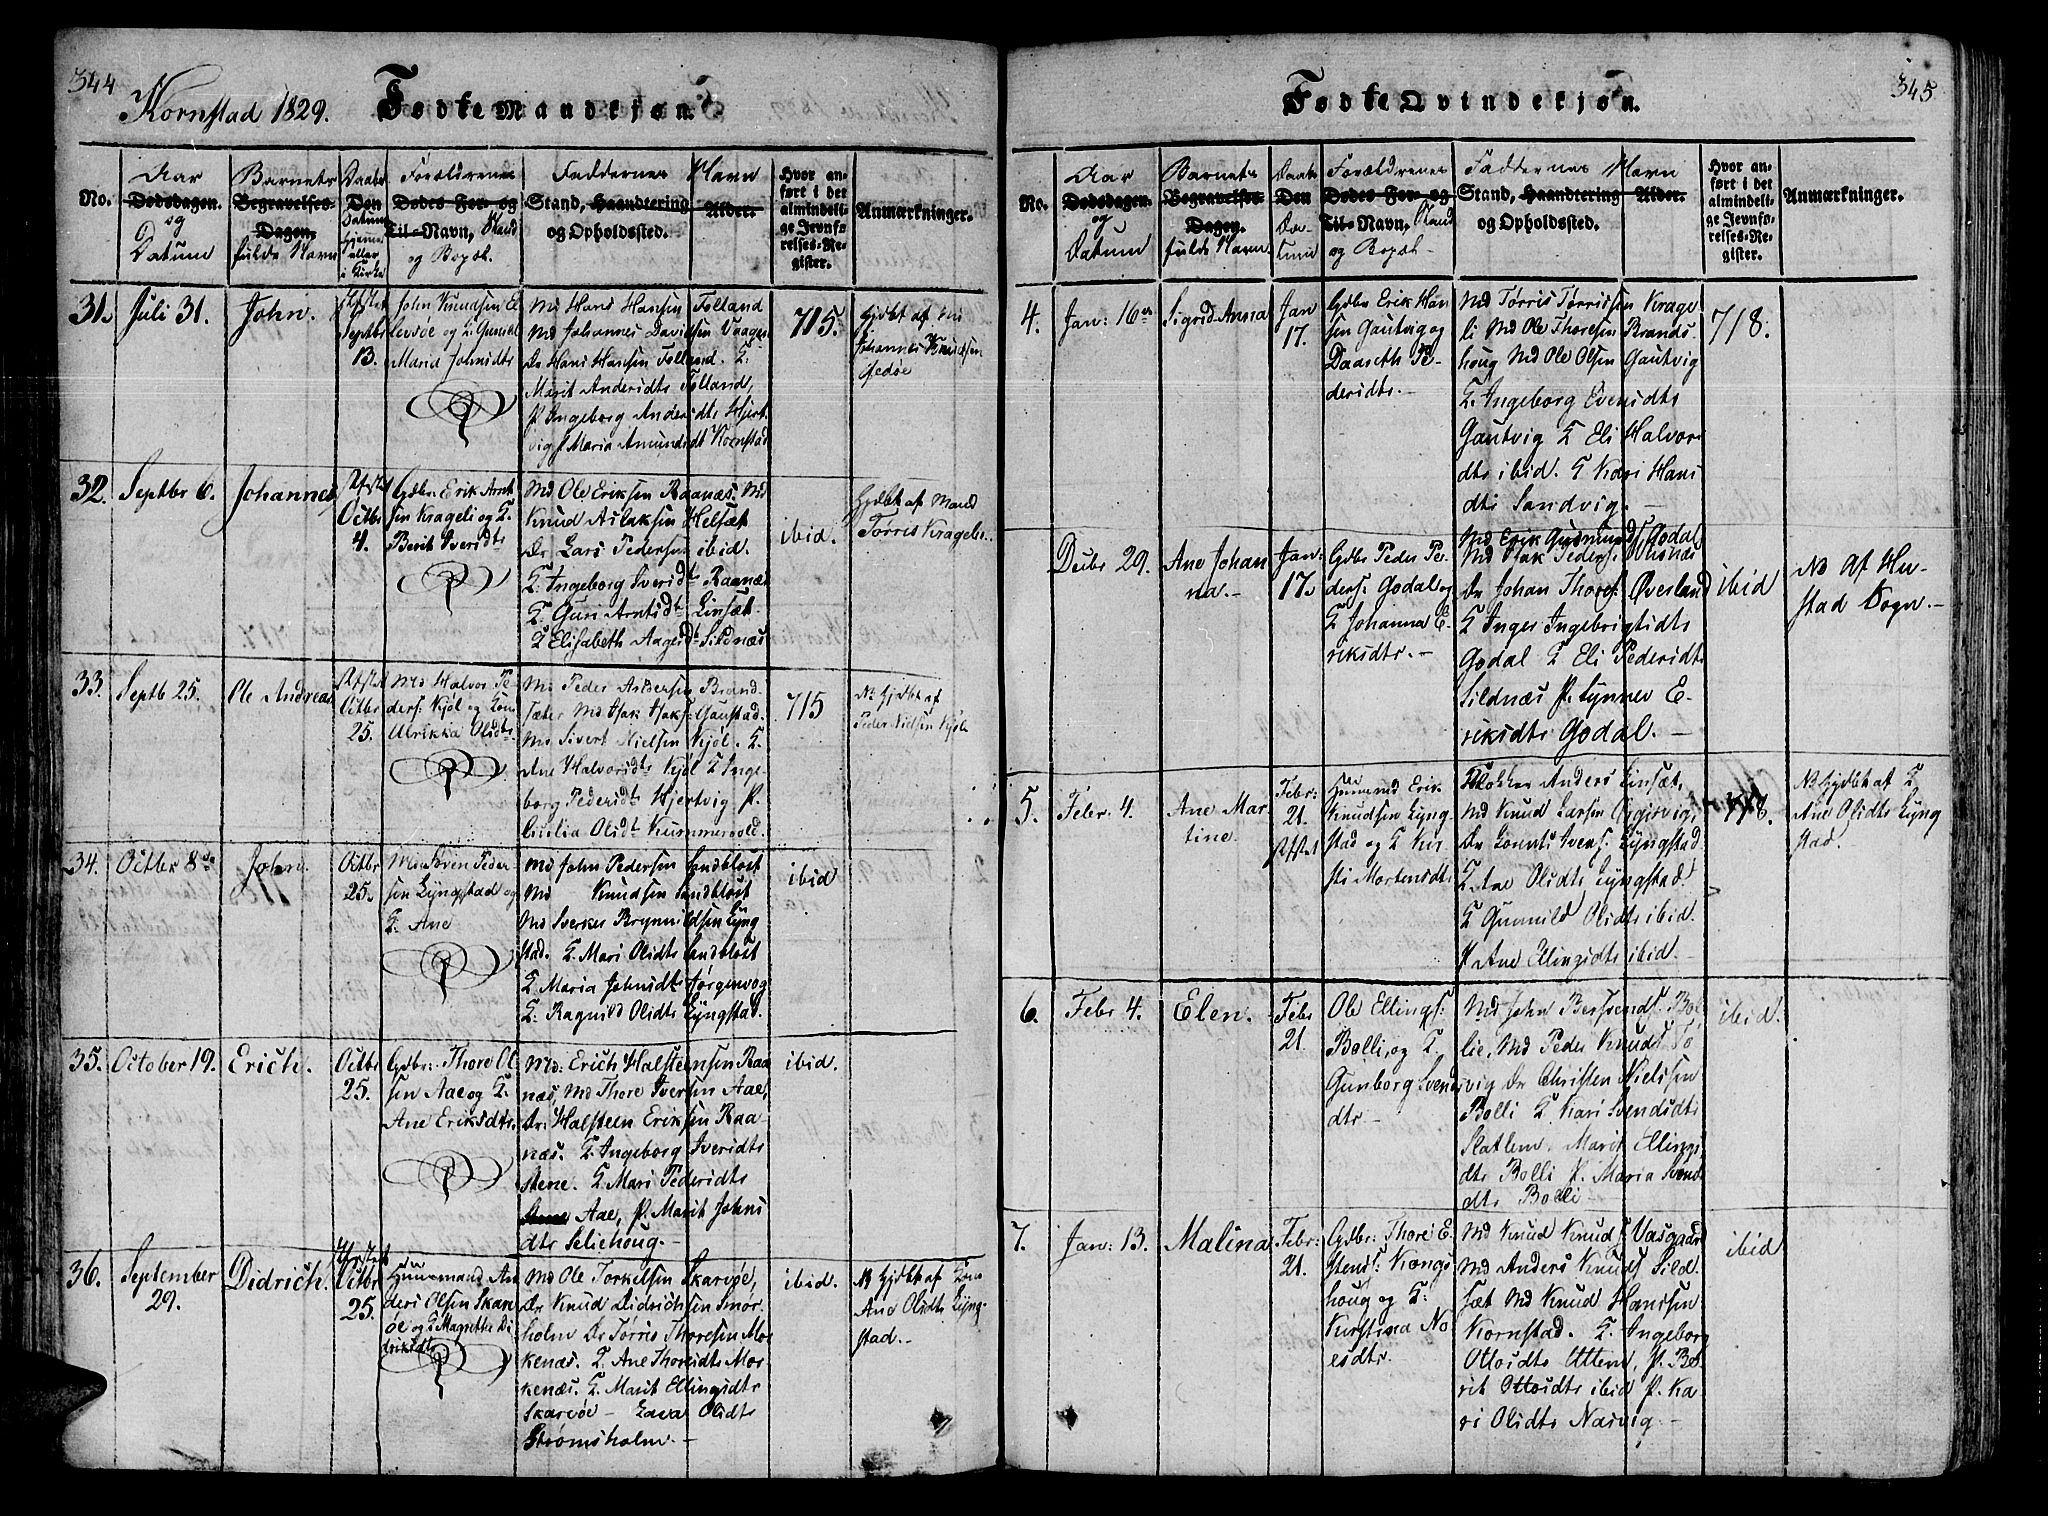 344
Kornstad 1829.
Fødte Mandkjøn.
No.
Aar
Dødsdagen.
og
Datum
Barnets
Begravelses-
Dagen.
fulde Navn
Daabs
Den
Datum
Hjemme
eller
i Kirke
Forældrenes
Dødes For- og
Til-Navn, Stand
og Bopæl.
Faddernes Navn
Stand, Haandtering Alder.
og Opholdssted.
Hvor an-
ført i det
almindeli-
ge Jevnfø-
relses-Re-
gister.
Anmærkninger.
31.
Juli 31.
John.
Septbr
13.
John Knudsen E
og Q. Gunild
Maria Johnsdtr
Md Hans Hansen Folland
Md Johannes Davidsen Vaagen
Dr Hans Hansen Folland. Q.
Marit Andersdtr Folland,
P. Ingeborg Andersdtr Hjert
vig P Maria Amundsdt Kornstad
715.
Hjdbt af Md
Johannes Knudsen
32.
Septbr 6.
Johannes
Octbr
4.
Gdbr. Erik Arnt
sen Krageli og Q.
Berit Iversdtr
Md Ole Eriksen Raanæs. Md
Knud Aslaksen Helsæt
Dr. Lars Pedersen ibid.
Q. Ingeborg Iversdt Raanæs
Q. Guri Arntsdt Linsæt.
Q Elisabeth Aagesdt Sildnæs
ibid.
Hjdbt af Mand
Tørris Krageli.
33.
Septb 25.
Ole Andreas
Octbr
25.
Md Halvor Pe-
ders. Kjøl og Kone
Ulrikka Olsdtr.
Md Peder Andersen Brand-
sæter Md Isak Isaks. Gaustad.
Md Sivert Nielsen Kjøl. Q.
Ane Halvorsdtr Kjøl Q Inge-
borg Pedersdt Hjertvig P.
Cicilia Olsdt Kummervold.
715
Nb Hjdbt af
Peder Nielsen Kjøl
34.
Octbr 8de
John.
Octbr
25.
Md Sven Peder
sen Lyngstad og
Q. Ane
Md John Pedersen Sandblost
Md Knudsen Sandblost
Md Sverker Brynnildsen Lyng
stad. Q. Mari Olsdtr Sandblost
Q. Maria Johnsdtr Jørgenvog
Q. Ragnild Olsdtr Lyngstad.
ibid
35.
October 19.
Erich.
Octbr
25.
Gdbr: Thore Ol
sen Aae og Q.
Ane Eriksdtr.
Md: Erich Halstensen Raa
næs, Md Thore Iversen Aae,
Dr. Halsteen Eriksen Raa-
næs. Q. Ingeborg Iversdtr
stene. Q. Mari Pedersdtr
Aae, P. Marit Johns
dtr Seliehoug.
ibid.
36.
September
29.
Didrich.
Octbr
25.
Huusmand An
ders Olsen Skar
øe og Q Magrethe Di
driksdtr
Md Ole Torkelsen Skarøe,
Dr Knud Didrichsen Smør-
holm Dr Tørris Thoresen Mor
kenæs. Q. Ane Thoresdtr Mor-
kenæs. Q. Marit Ellingsdtr
Skarvøe - Olsdtr
Strømsholm.
ibid.
Nb Hjdbt af Kone
Ane Olsdtr Lyng-
stad.
345
Fødte Qvindekjøn.
No.
Aar
Dødsdagen.
og
Datum
Barnets
Begravelses-
Dagen.
fulde Navn
Daabs
Den
Da-
tum
Forældrenes
Dødes For- og
Til-Navn, Stand
og Bopæl
Faddernes Navn
Stand, Haandtering Alder.
og Opholdssted.
Hvor an-
ført i det
almindeli-
ge Jevnfø-
relses-Re-
gister.
Anmærkninger.
4.
Jan: 16de
Sigrid Anna
Jan
17.
Gdbr Erik Han
sen Gautvig og
Daareth Pe-
dersdtr.
Md Tørris Tørrissen Krage
li Md Ole Thoresen Brands
houg Md Ole Olsen Gautvig
Q. Ingeborg Evensdtr
Gautvig Q Eli Halvors
dtr ibid. Q Kari Hans
dtr Sandvig.
718.
Decbr 29.
Ane Johan
na.
Jan:
17.
Gdbr Peder Pe-
ders. Godal og
Q Johanna E-
riksdtr.
Md Erik Gudmunds Godal
Md Isak Peders.
Dr Johan Thores. Øverland
Q Inger Ingebrigtsdtr
Godal Q Eli Pedersdtr
Sildnæs P. Synnev E-
riksdtr Godal.
ibid
Nb Af Hu-
stad Sogn.
5.
Febr. 4.
Ane Mar
tine.
Febr:
21.
Huusmd Erik
Knudsen Lyng-
stad og Q Kir-
sti Mortensdtr
Klokker Anders Linsæt,
Md Knud Larsen
Dr Lorents Ivers. Lyngstad
Q. Ane Olsdtr Lyngstad.
Q Gunnild Olsdtr ibid.
P Ane Ellingsdtr ibid.
718.
Nb Hjdbt af Q
Ane Olsdtr Lyng
stad.
6.
Febr 4.
Elen.
Febr
21.
Ole Ellings:
Bolli, og Q.
Gunborg Svends
dtr
Md John Berfvends. Bol
lie, Md Peder Knuds To
vig Dr Christen Nielsen
Bolli Q Kari Svendsdtr
Slatlem. Marit Ellings
dtr Bolli P. Maria Svends
dtr Bolli
ibid.
7.
Jan: 13.
Malina
Febr:
21.
Gdbr: Thore E
stens: Kongs
houg og Q.
Kirstina No
esdtr.
Md Knud Knuds Vasgaard
Md Anders Knuds Sild
sæt Md Knud Hanssen
Kornstad. Q. Ingeborg
Ottosdtr Uttem, P. Be
rit Ottosdtr ibid P. Ka
ri Olsdtr Nasvig.
ibid